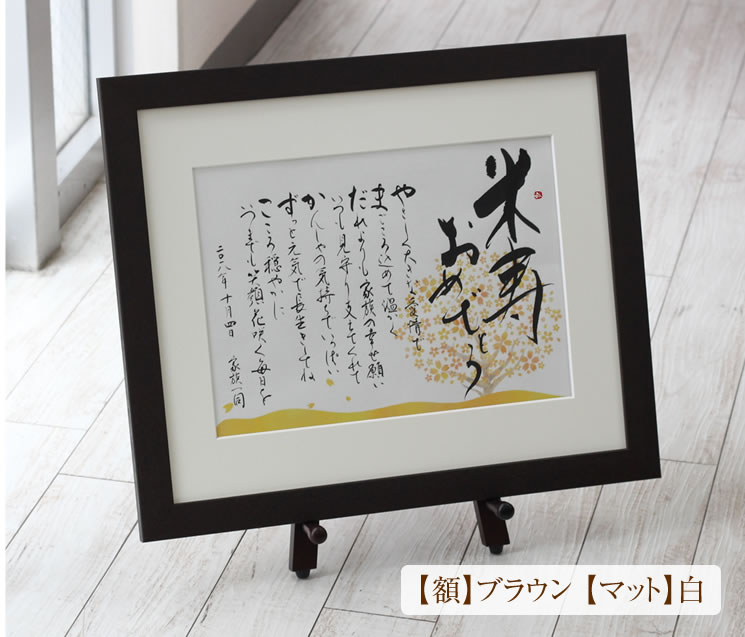 米寿
おめでとう
やさしく大きな愛情で
まごころ込めて温かく
だれよりも家族の幸せ願い
いつも見守り支えてくれて
かんしゃの気持ちでいっぱい
ずっと元気で長生きしてね
こころ穏やかに
いつまでも笑顔花咲く毎日を
二〇一八年十月四日
家族一同
【額】ブラウン【マット】白